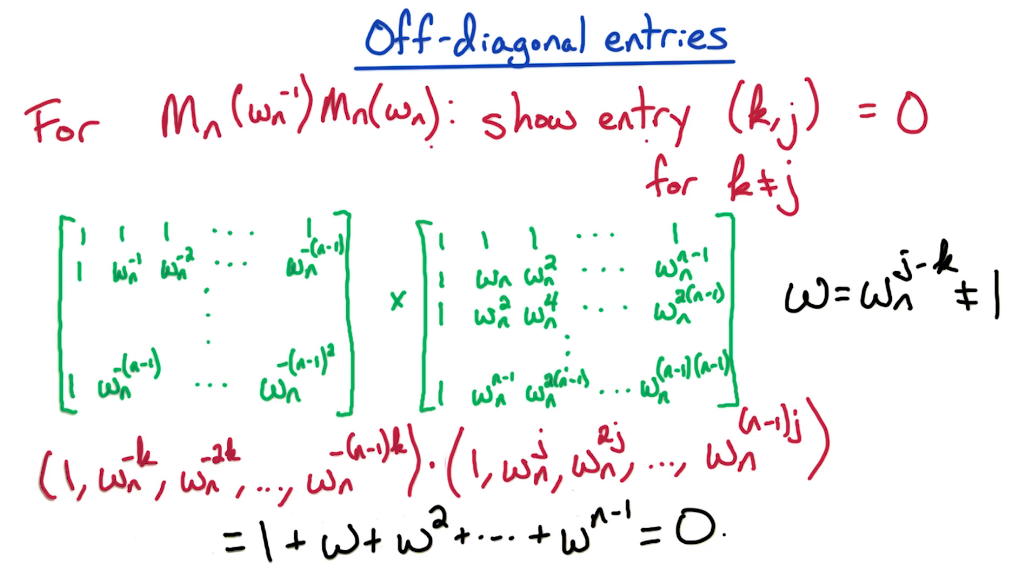 Off-diagonal entries
For Mₙ(ωₙ⁻¹)Mₙ(ωₙ): show entry (k,j) = 0
for k≠j
[1 1 1 ... 1
1 ωₙ^-1 ωₙ^-2 ... ωₙ^-(n-1)
⋮
1 ωₙ^-(n-1) ... ωₙ^-(n-1)^2]
×
[1 1 1 ... 1
1 ωₙ ωₙ^2 ... ωₙ^n-1
1 ωₙ^2 ωₙ^4 ... ωₙ^2(n-1)
⋮
1 ωₙ^n-1 ωₙ^2(n-1) ... ωₙ^(n-1)(n-1)]
ω = ωₙ^j-k ≠ 1
(1, ωₙ^-k, ωₙ^-2k, ..., ωₙ^-(n-1)k) · (1, ωₙ^j, ωₙ^2j, ..., ωₙ^(n-1)j)
= 1 + ω + ω^2 + ... + ω^n-1 = 0.